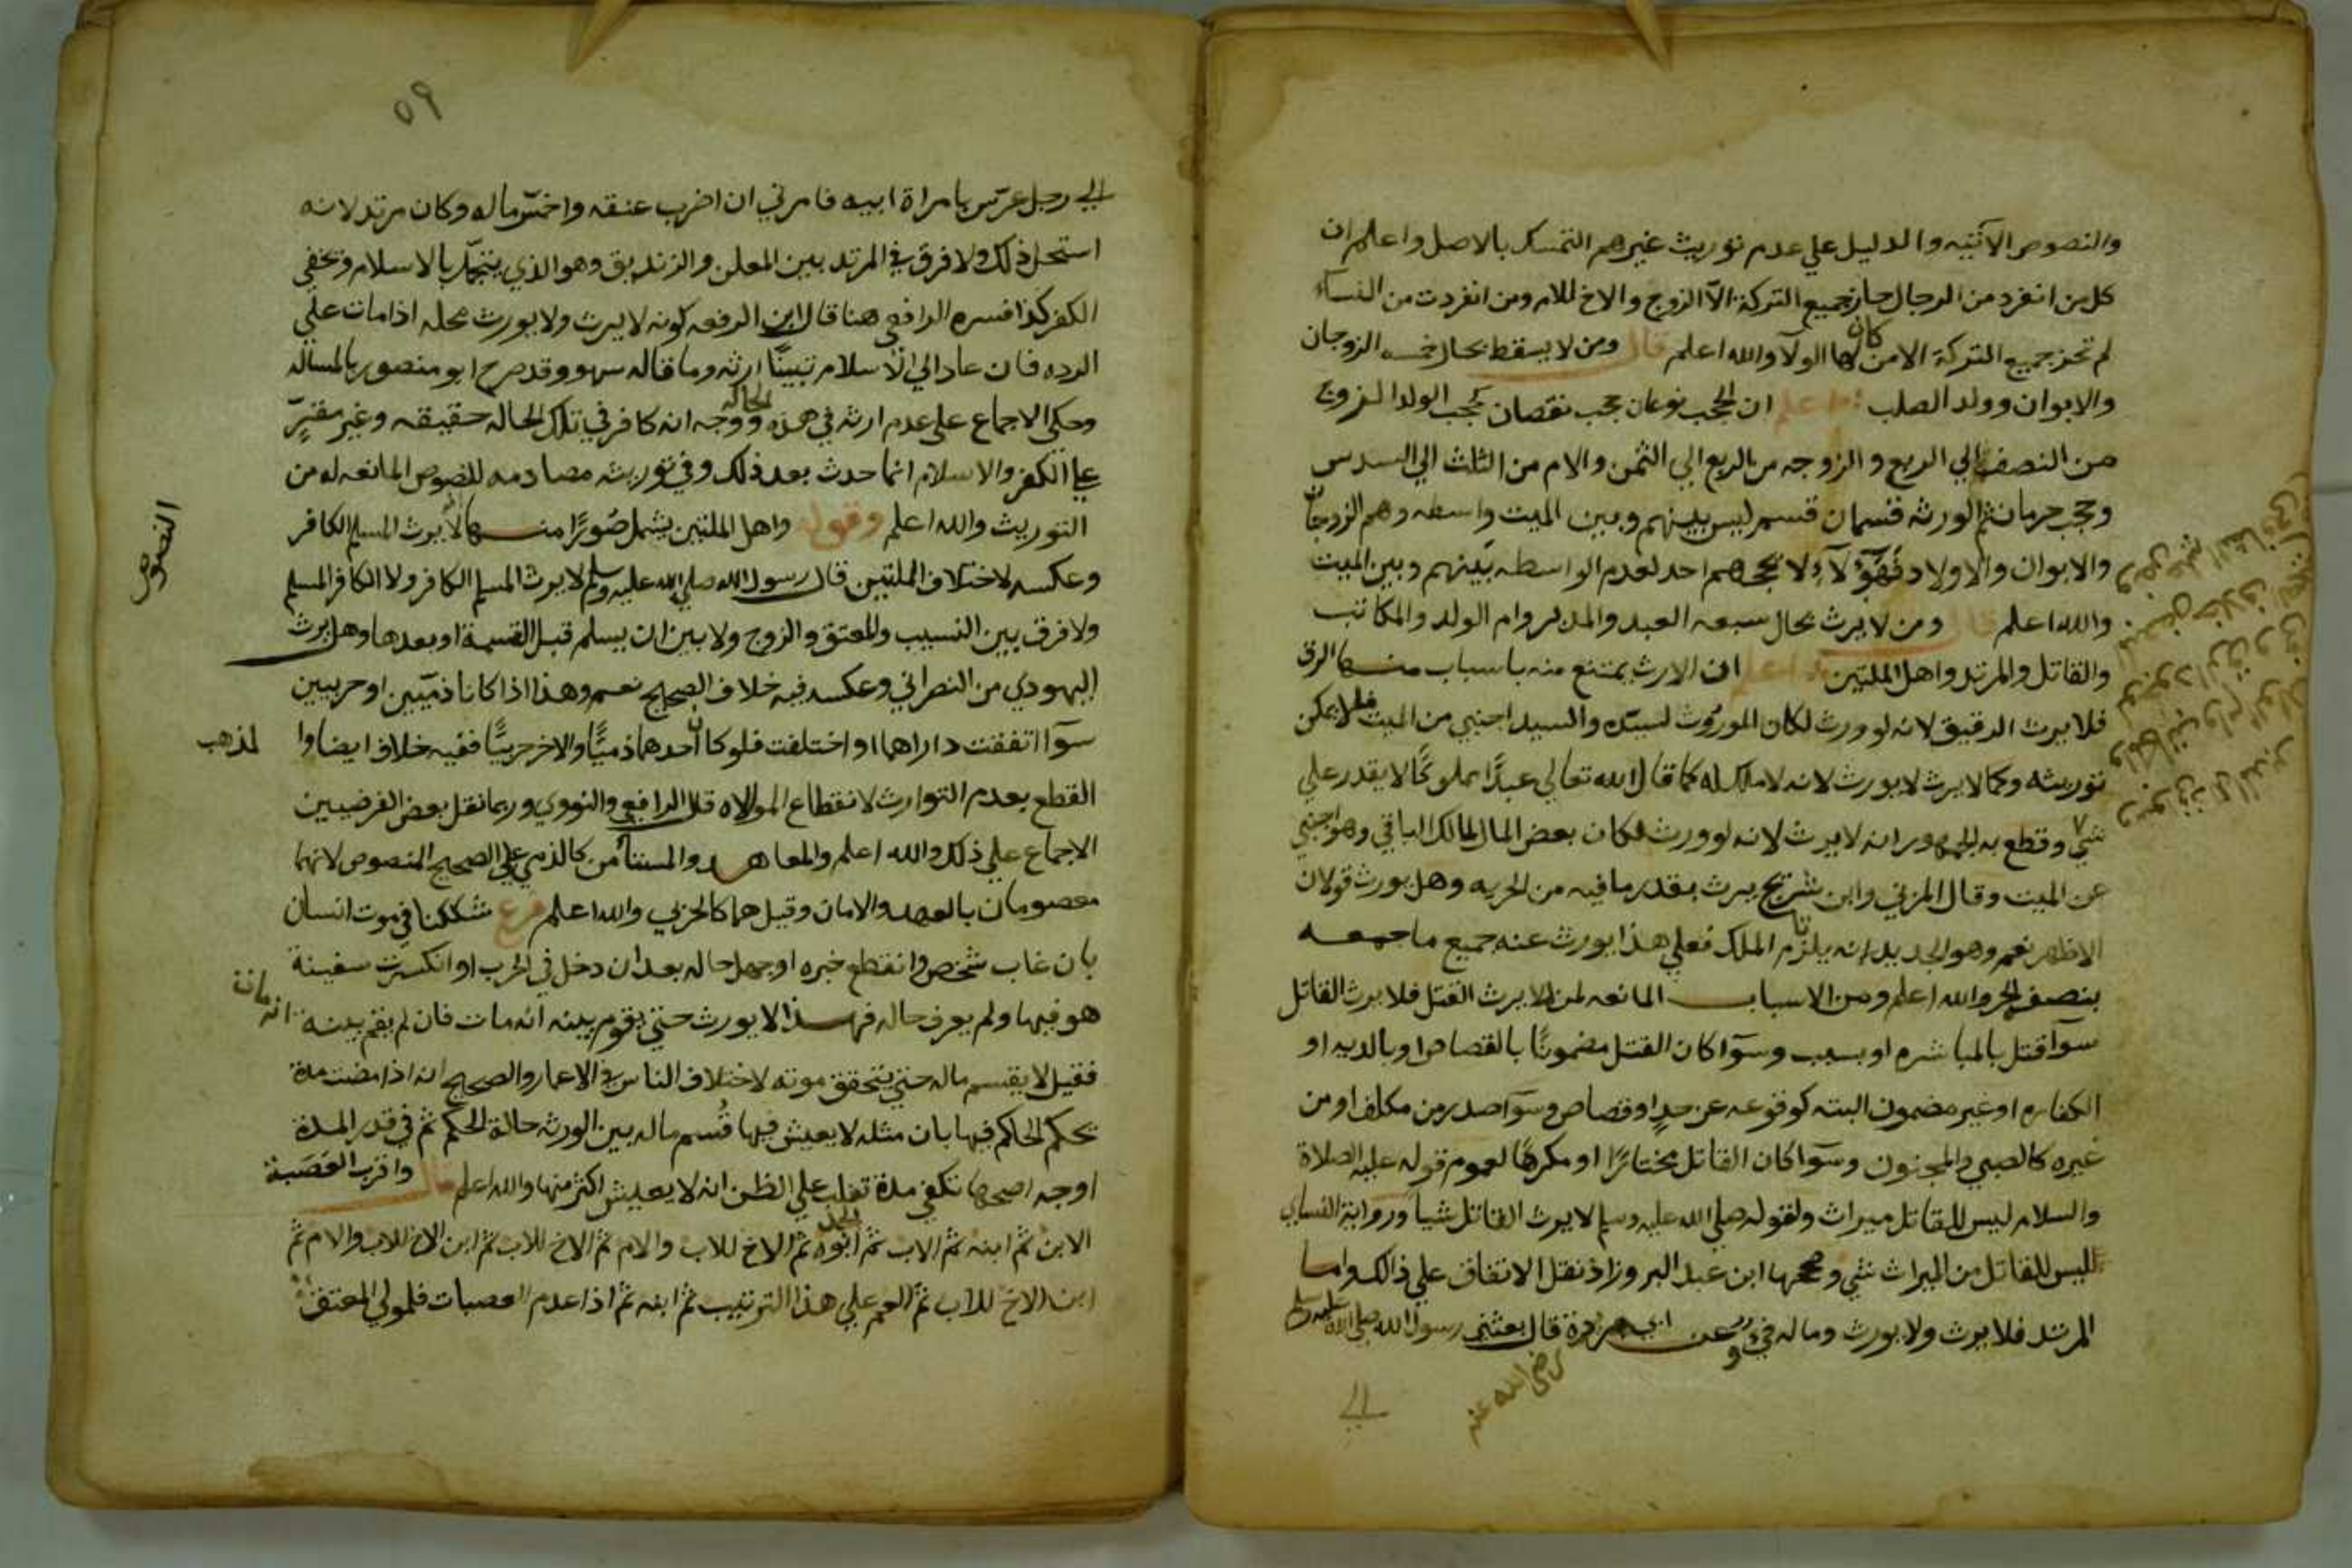 والنصوص الآتيه والدليل علي عدم توريث غيرهم التمسك بالاصل واعلم ان
كل من انفرد من الرجال حاز جميع التركة الا الزوج والاخ للام ومن انفردت من النساء
لم تحز جميع التركة الا من كان لها الولآ والله اعلم قال ومن لا يسقط بحال خمسه الزوجان
والابوان وولد الصلب اعلم ان الحجب نوعان حجب نقصان كحجب الولد الزوج
من النصف الي الربع والزوجه من الربع الي الثمن والام من الثلث الي السدس
وحجب حرمان ثم الورثه قسمان قسم ليس بينهم وبين الميت واسطه وهم الزوجان
والابوان والاولاد فهؤلآء لا يحجبهم احد لعدم الواسطه بينهم وبين الميت
والله اعلم قال ومن لا يرث بحال سبعه العبد والمدبر وام الولد والمكاتب
والقاتل والمرتد واهل الملتين اعلم ان الارث يمتنع منه باسباب منها الرق
فلا يرث الرقيق لانه لو ورث لكان الموروث لسيده والسيد اجنبي من الميت فلا يمكن
توريثه وكما لا يرث لا يورث لانه لا ملك له كما قال الله تعالي عبدًا مملوكًا لا يقدر علي
شي وقطع به الجمهور انه لا يرث لانه لو ورث لكان بعض المال لمالك الباقي وهو اجنبي
عن الميت وقال المزني وابن شريح يرث بقدر ما فيه من الحريه وهل يورث قولان
الاظهر نعم وهو الجديد انه يلزم الملك فعلي هذا يورث عنه جميع ما جمعه
بنصفه الحر والله اعلم ومن الاسباب المانعه لمن لا يرث القتل فلا يرث القاتل
سوآ قتل بالمباشره او بسبب وسوآ كان القتل مضمونًا بالقصاص او بالديه او
الكفاره او غير مضمون البته كوقوعه عن حد او قصاص وسوآ صدر من مكلف او من
غيره كالصبي والمجنون وسوآ كان القاتل مختارًا او مكرهًا لعموم قوله عليه الصلاة
والسلام ليس للقاتل ميراث ولقوله صلي الله عليه وسلم لا يرث القاتل شيا ورواية النساي
ليس للقاتل من الميراث شي وصححها ابن عبد البر وزاد نقل الاتفاق علي ذالك واما
المرتد فلا يرث ولا يورث وماله في وعن ابي هريرة قال بعثني رسول الله صلي الله عليه وسلم
رضي الله عنه
الي
٥٩
الي رجل عرّس بامراة ابيه فامرني ان اضرب عنقه واخمّس ماله وكان مرتد لانه
استحل ذلك ولا فرق في المرتد بين المعلن والزنديق وهو الذي يتجمّل بالاسلام ويخفي
الكفر كذا فسره الرافعي هنا قال ابن الرفعه كونه لا يرث ولا يورث محله اذا مات علي
الرده فان عاد الي الاسلام تبينّا ارثه وما قاله سهو وقد صرح ابو منصور بالمساله
وحكي الاجماع علي عدم ارثه في هذه الحاله ووجه انه كافر في تلك الحاله حقيقه وغير مقرّ
علي الكفر والاسلام انما حدث بعد ذلك وفي توريثه مصادمه للنصوص المانعه له من
النصوص
التوريث والله اعلم وقوله واهل الملتين يشمل صُورًا منها لا يرث المسلم الكافر
وعكسه لاختلاف الملتين قال رسول الله صلي الله عليه وسلم لا يرث المسلم الكافر ولا الكافر المسلم
ولا فرق بين النسيب والمعتق والزوج ولا بين ان يسلم قبل القسمة او بعدها وهل يرث
اليهودي من النصراني وعكسه فيه خلاف الصحيح نعم وهذا اذا كانا ذميّين او حربيين
سوآ اتفقت داراهما او اختلفت فلو كان احدهما ذميًّا والاخر حربيًّا ففيه خلاف ايضا وا
لمذهب
القطع بعدم التوارث لانقطاع الموالاه قال الرافعي والنووي وربما نقل بعض الفرضيين
الاجماع علي ذلك والله اعلم والمعاهد والمستأمن كالذمي علي الصحيح المنصوص لانهما
معصومان بالعهد والامان وقيل هما كالحربي والله اعلم فرع شككنا في موت انسان
بان غاب شخص وانقطع خبره او جهل حاله بعد ان دخل في الحرب او انكسرت سفينة
هو فيها ولم يعرف حاله فهذا لا يورث حتي يقوم بينه انه مات فان لم يقم بينه
انه مات
فقيل لا يقسم ماله حتي يتحقق موته لاختلاف الناس في الاعمار والصحيح انه اذا مضت مدة
يحكم الحاكم فيها بان مثله لا يعيش فيها قُسم ماله بين الورثه حالة الحكم ثم في قدر المدة
اوجه اصحها تكفي مدة تغلب علي الظن انه لا يعيش اكثر منها والله اعلم قال واقرب العَصَبة
الابن ثم ابنه ثم الاب ثم ابوه الجد ثم الاخ للاب والام ثم الاخ للاب ثم ابن الاخ للاب والام ثم
ابن الاخ للاب ثم العم علي هذا الترتيب ثم ابنه ثم اذا عدم العصبات فلمولي المعتق